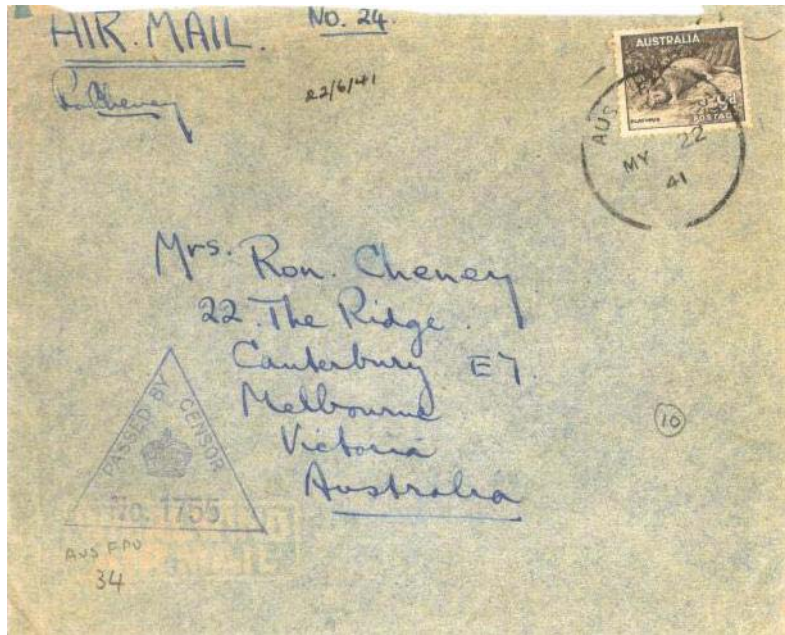 AIR. MAIL.
No. 24.
R. Cheney
22/6/41
AUSTRALIA
PLATYPUS
9d
POSTAGE
AUS
MY 22
41
Mrs. Ron. Cheney
22. The Ridge.
Canterbury E7.
Melbourne
Victoria
Australia
PASSED BY CENSOR
No. 1755
10
AUS FPO
34
AIR MAIL